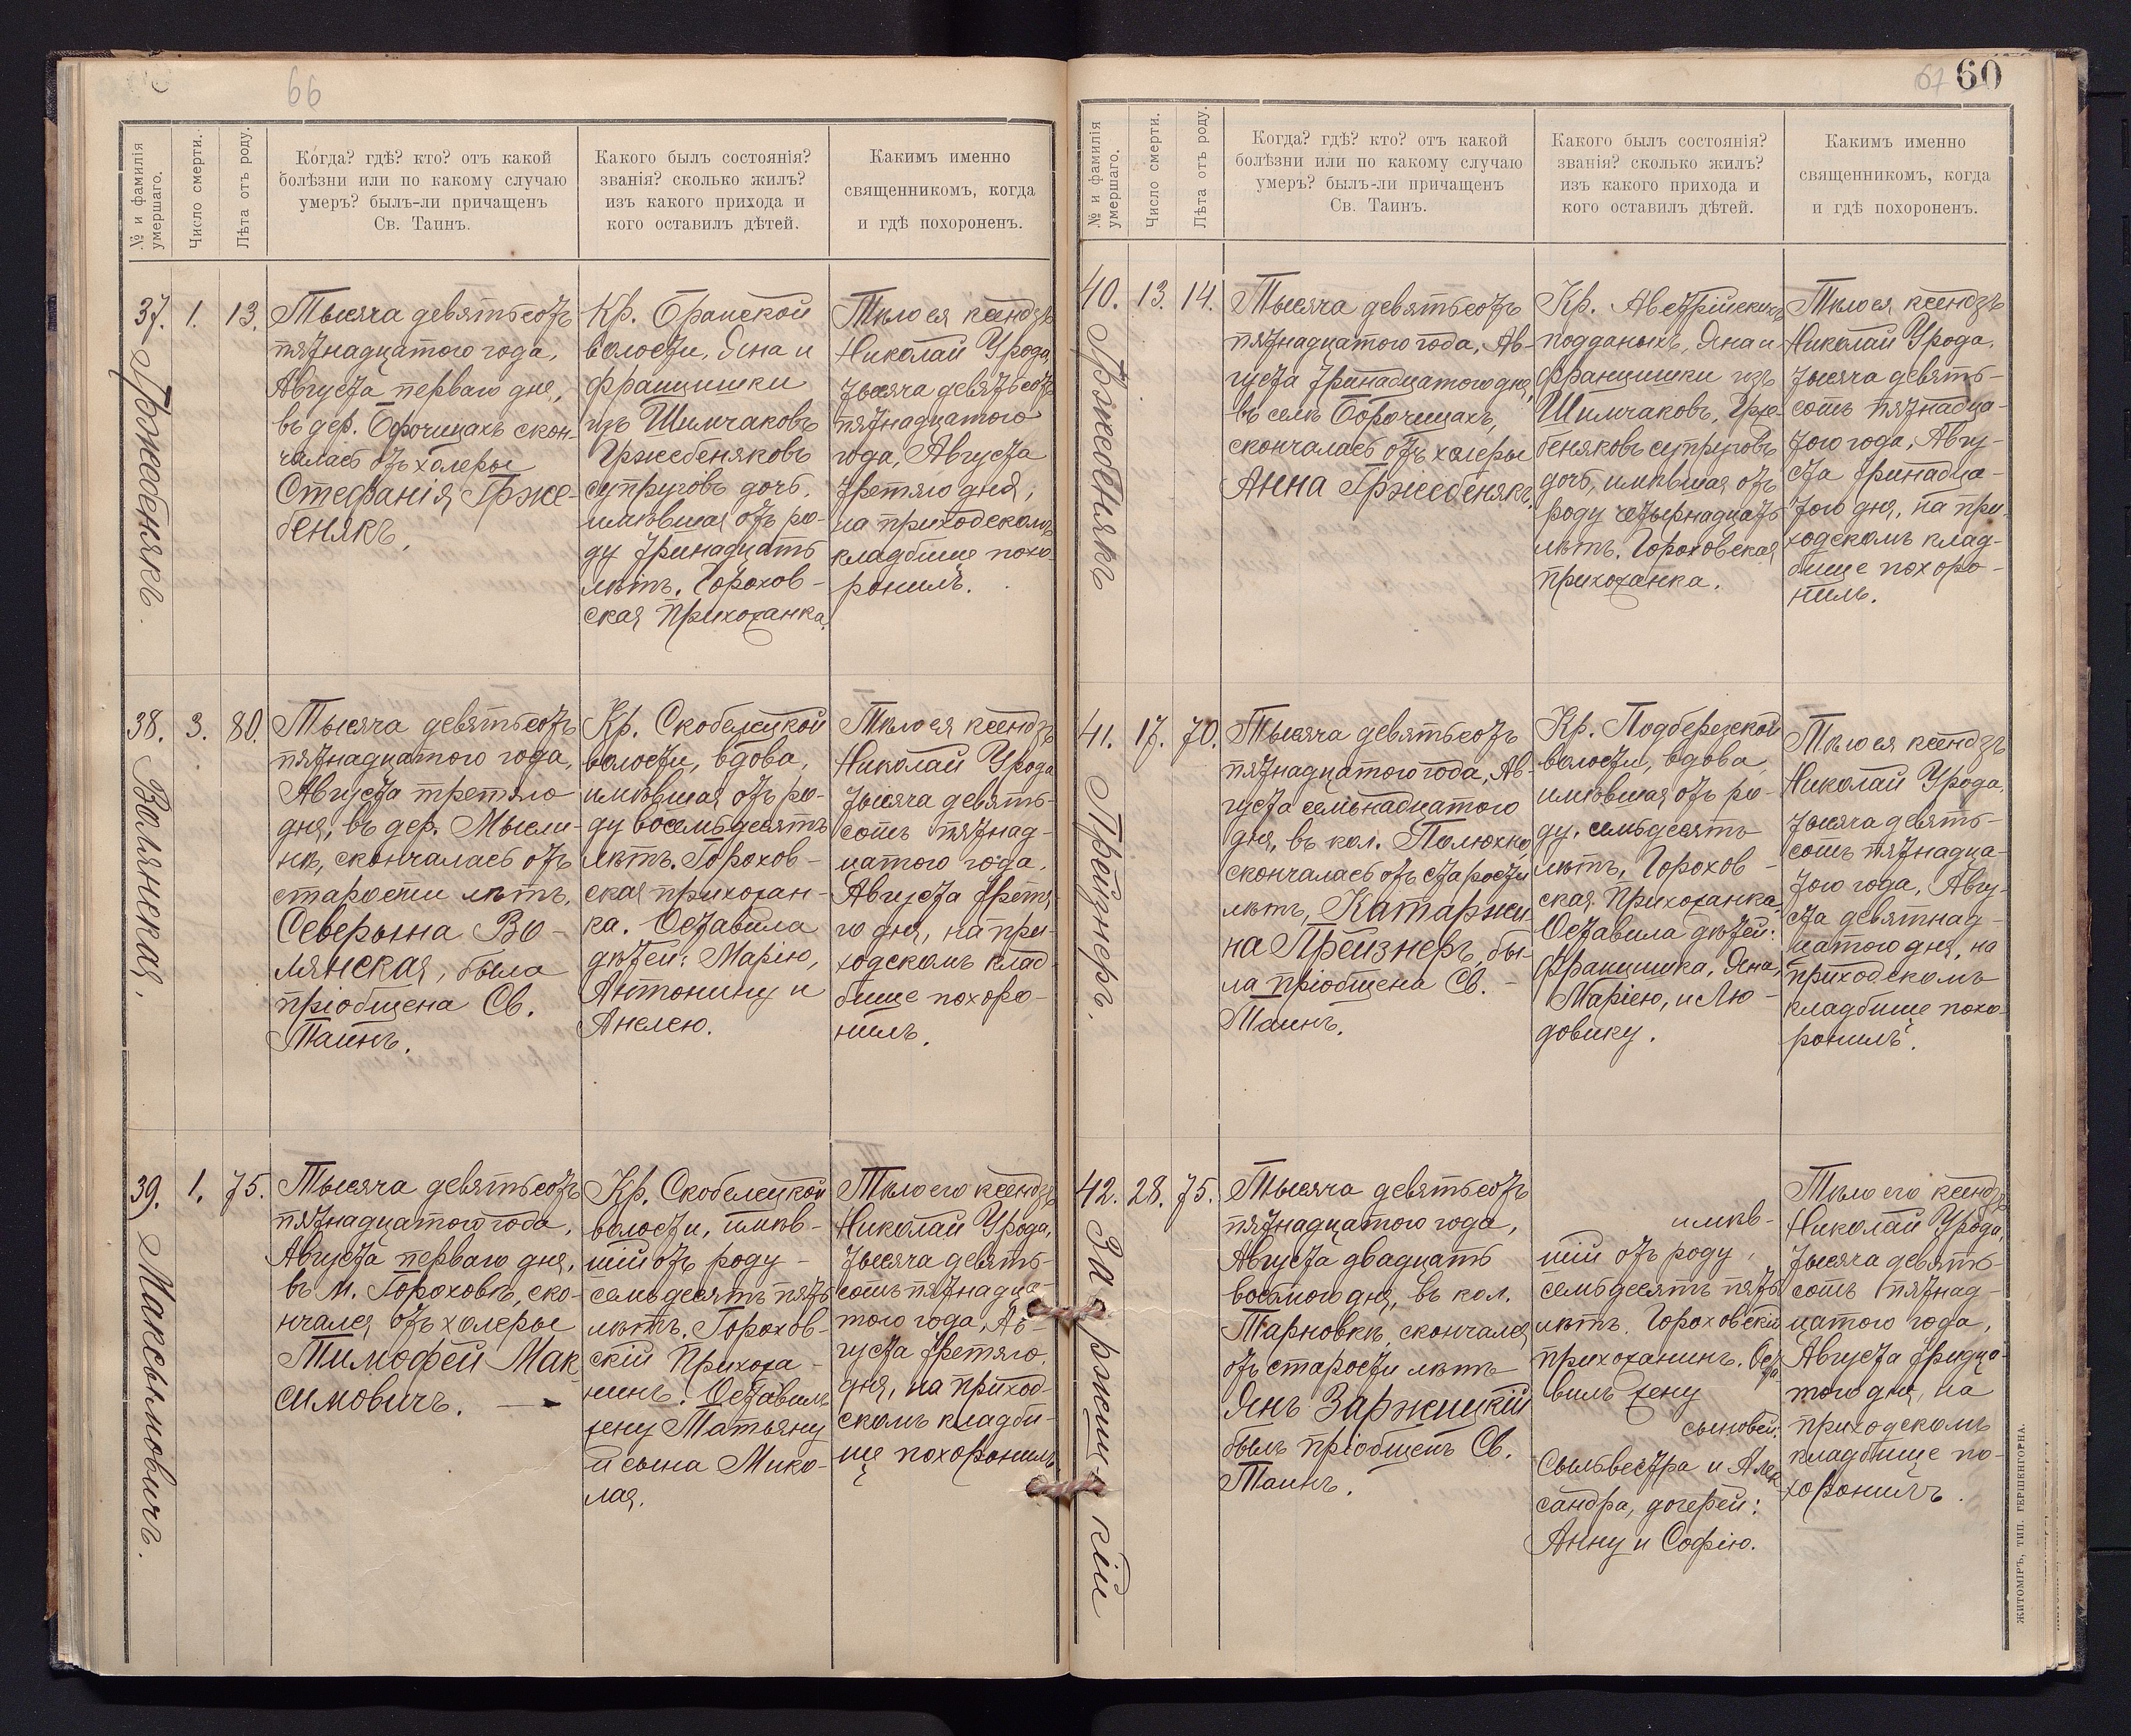 66
№ и фамилія
умершаго.
Число смерти.
Лѣта отъ роду.
Когда? гдѣ? кто? отъ какой
болѣзни или по какому случаю
умеръ? былъ-ли причащенъ
Св. Таинъ.
Какого былъ состоянія?
званія? сколько жилъ?
изъ какого прихода и
кого оставилъ дѣтей.
Какимъ именно
священникомъ, когда
и гдѣ похороненъ.
37.
Гржебенякъ.
1.
13.
Тысяча девятьсотъ
пятнадцатого года,
Августа перваго дня,
въ дер. Борочицахъ скон-
чалась отъ холеры
Стефанія Грже-
бенякъ.
Кр.
волости, Яна и
Францишки
изъ Шимчаковъ
Гржебеняковъ
супруговъ дочь,
имѣвшая отъ ро-
ду тринадцать
лѣтъ. Горохов-
ская прихожанка.
Тѣло ея ксендзъ
Николай Урода,
тысяча девятьсотъ
пятнадцатого
года, Августа
третяго дня,
на приходскомъ
кладбище похо-
ронилъ.
38.
Волянская.
3.
80.
Тысяча девятьсотъ
пятнадцатого года,
Августа третяго
дня, въ дер. Мысли-
нѣ, скончалась отъ
старости лѣтъ,
Северына Во-
лянская, была
пріобщена Св.
Таинъ.
Кр. Скобелецкой
волости, вдова,
имѣвшая отъ ро-
ду восемьдесятъ
лѣтъ. Горохов-
ская прихожан-
ка. Оставила
дѣтей: Марію,
Антонину и
Анелею.
Тѣло ея ксендзъ
Николай Урода
тысяча девять-
сотъ пятнад-
цатого года,
Августа третя-
го дня, на при-
ходскомъ клад-
бище похоро-
нилъ.
39.
Максымовичъ.
1.
75.
Тысяча девятьсотъ
пятнадцатого года,
Августа перваго дня,
въ м. Гороховѣ, ско-
нчался отъ холеры
Тимофей Мак-
симовичъ.
Кр. Скобелецкой
волости, имѣв-
шій отъ роду
семьдесятъ пять
лѣтъ. Горохов-
скій прихожа-
нинъ. Оставилъ
жену Татьяну
и сына Мико-
лая.
Тѣло его ксендзъ
Николай Урода,
тысяча девять-
сотъ пятнадца-
того года, Ав-
густа третяго
дня, на приход-
скомъ кладби-
ще похоронилъ
67 60
№ и фамилія
умершаго.
Число смерти.
Лѣта отъ роду.
Когда? гдѣ? кто? отъ какой
болѣзни или по какому случаю
умеръ? былъ-ли причащенъ
Св. Таинъ.
Какого былъ состоянія?
званія? сколько жилъ?
изъ какого прихода и
кого оставилъ дѣтей.
Какимъ именно
священникомъ, когда
и гдѣ похороненъ.
40.
Гржебенякъ
13.
14.
Тысяча девятьсотъ
пятнадцатого года, Ав-
густа тринадцатого дня,
въ селѣ Борочицахъ,
скончалась отъ холеры
Анна Гржебенякъ.
Кр. Австрійскихъ
подданыхъ, Яна и
Францишки изъ
Шимчаковъ, Грже-
беняковъ супруговъ
дочь, имѣвшая отъ
роду четырнадцать
лѣтъ. Гороховская
прихожанка.
Тѣло ея ксендзъ
Николай Урода,
тысяча девять-
сотъ пятнадца-
того года, Авгу-
ста тринадца-
того дня, на при-
ходскомъ клад-
бище похоро-
нилъ.
41.
17.
70.
Тысяча девятьсотъ
пятнадцатого года, Ав-
густа семьнадцатого
дня, въ кол. Полюхно
скончалась отъ старости
лѣтъ, Катаржи-
на Прейзнеръ, бы-
ла пріобщена Св.
Таинъ.
Кр. Подберезской
волости, вдова,
имѣвшая отъ ро-
ду семьдесятъ
лѣтъ, Горохов-
ская прихожанка.
Оставила дѣтей:
Францишка, Яна,
Марiею, и Лю-
довику.
Тѣло ея ксендзъ
Николай Урода,
тысяча девять-
сотъ пятнадца-
того года, Авгу-
ста девятнад-
цатого дня, на
приходскомъ
кладбище похо-
ронилъ.
42.
Заржицкій
28.
75.
Тысяча девятьсотъ
пятнадцатого года,
Августа двадцать
восьмого дня, въ кол.
Тарновкѣ, скончался
отъ старости лѣтъ
Янъ Заржицкій
былъ пріобщенъ Св.
Таинъ.
имѣв-
шій отъ роду
семьдесятъ пять
лѣтъ. Гороховскій
прихожанинъ. Оста-
вилъ жену
сыновей:
Сыльвестра и Алек-
сандра, дочерей:
Анну и Софію.
Тѣло его ксендзъ
Николай Урода,
тысяча девять-
сотъ пятнад-
цатого года,
Августа тридца-
того дня, на
приходскомъ
кладбище по-
хоронилъ.
ЖИТОМІРЪ, ТИП. ГЕРШЕНГОРНА.